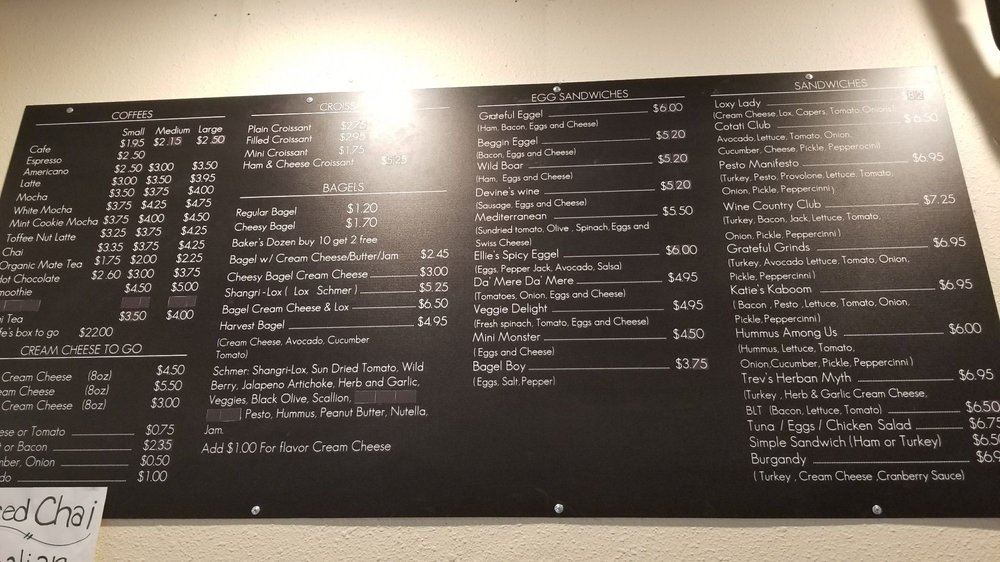 COFFEES
Small Medium Large
Cafe $1.95 $2.15 $2.50
Espresso $2.50
Americano $2.50 $3.00 $3.50
Latte $3.00 $3.50 $3.95
Mocha $3.50 $3.75 $4.00
White Mocha $3.75 $4.25 $4.75
Mint Cookie Mocha $3.75 $4.00 $4.50
Toffee Nut Latte $3.25 $3.75 $4.25
Chai $3.35 $3.75 $4.25
Organic Mate Tea $1.75 $2.00 $2.25
Hot Chocolate $2.60 $3.00 $3.75
$4.50 $5.00
Tea $3.50 $4.00
box to go $22.00
CREAM CHEESE TO GO
Cream Cheese (8oz) $4.50
Cheese (8oz) $5.50
Cream Cheese (8oz) $3.00
or Tomato $0.75
or Bacon $2.35
Onion $0.50
$1.00
Chai
Plain Croissant $2.75
Filled Croissant $2.95
Mini Croissant $1.75
Ham & Cheese Croissant $5.25
BAGELS
Regular Bagel $1.20
Cheesy Bagel $1.70
Baker's Dozen buy 10 get 2 free
Bagel w/ Cream Cheese/Butter/Jam $2.45
Cheesy Bagel Cream Cheese $3.00
Shangri-Lox ( Lox Schmer ) $5.25
Bagel Cream Cheese & Lox $6.50
Harvest Bagel $4.95
(Cream Cheese, Avocado, Cucumber
Tomato)
Schmer: Shangri-Lox, Sun Dried Tomato, Wild
Berry, Jalapeno Artichoke, Herb and Garlic,
Veggies, Black Olive, Scallion,
, Pesto, Hummus, Peanut Butter, Nutella,
Jam.
Add $1.00 For flavor Cream Cheese
EGG SANDWICHES
Grateful Eggel $6.00
(Ham, Bacon, Eggs and Cheese)
Beggin Eggel $5.20
(Bacon, Eggs and Cheese)
Wild Boar $5.20
(Ham, Eggs and Cheese)
Devine's wine $5.20
(Sausage, Eggs and Cheese)
Mediterranean $5.50
(Sundried tomato, Olive , Spinach, Eggs and
Swiss Cheese)
Ellie's Spicy Eggel $6.00
(Eggs, Pepper Jack, Avocado, Salsa)
Da' Mere Da' Mere $4.95
(Tomatoes, Onion, Eggs and Cheese)
Veggie Delight $4.95
(Fresh spinach, Tomato, Eggs and Cheese)
Mini Monster $4.50
( Eggs and Cheese)
Bagel Boy $3.75
( Eggs, Salt, Pepper)
SANDWICHES
Loxy Lady
(Cream Cheese, Lox, Capers, Tomato, Onions)
Cotati Club $6.50
Avocado, Lettuce, Tomato, Onion,
Cucumber, Cheese, Pickle, Pepperocini)
Pesto Manifesto $6.95
(Turkey, Pesto, Provolone, Lettuce, Tomato,
Onion, Pickle, Peppercinni)
Wine Country Club $7.25
(Turkey, Bacon, Jack, Lettuce, Tomato,
Onion, Pickle, Peppercinni)
Grateful Grinds $6.95
(Turkey, Avocado Lettuce, Tomato, Onion,
Pickle, Peppercinni)
Katie's Kaboom $6.95
( Bacon , Pesto , Lettuce, Tomato, Onion,
Pickle, Peppercinni)
Hummus Among Us $6.00
(Hummus, Lettuce, Tomato,
Onion,Cucumber, Pickle, Peppercinni )
Trev's Herban Myth $6.95
(Turkey , Herb & Garlic Cream Cheese,
BLT (Bacon, Lettuce, Tomato) $6.50
Tuna / Eggs / Chicken Salad
Simple Sandwich (Ham or Turkey)
Burgandy
( Turkey , Cream Cheese ,Cranberry Sauce)